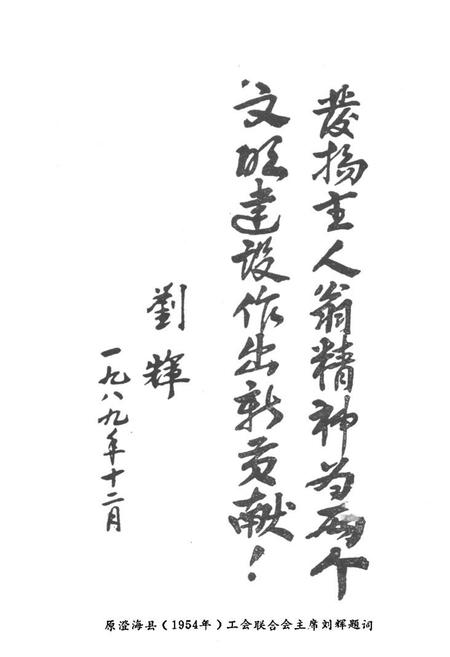 發扬主人翁精神为两个
文明建设作出新贡献！
劉輝
一九八九年十二月
原澄海县（1954年）工会联合会主席刘辉题词